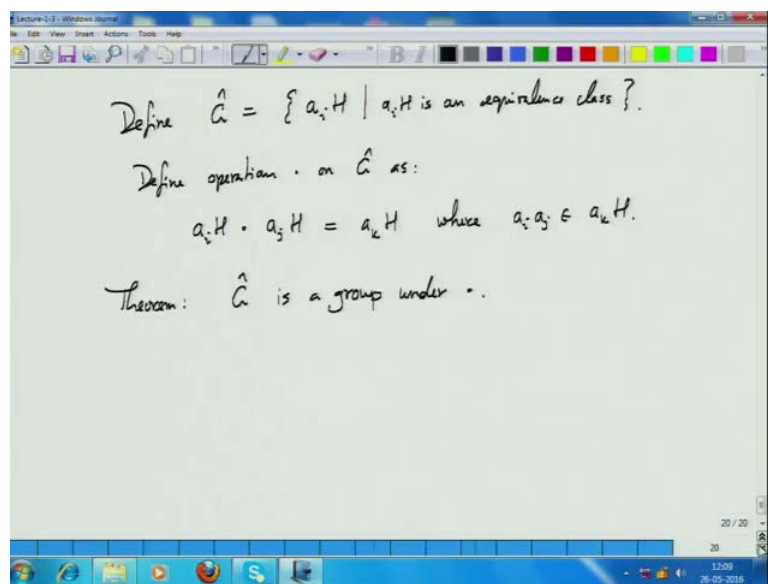 Lecture-1-3 - Windows Journal
File Edit View Insert Actions Tools Help
Define Ĝ = { aᵢH | aᵢH is an equivalence class }.
Define operation · on Ĝ as:
aᵢH · aⱼH = aₖH where aᵢaⱼ ∈ aₖH.
Theorem: Ĝ is a group under ·.
20 / 20
20
12:09
26-05-2016